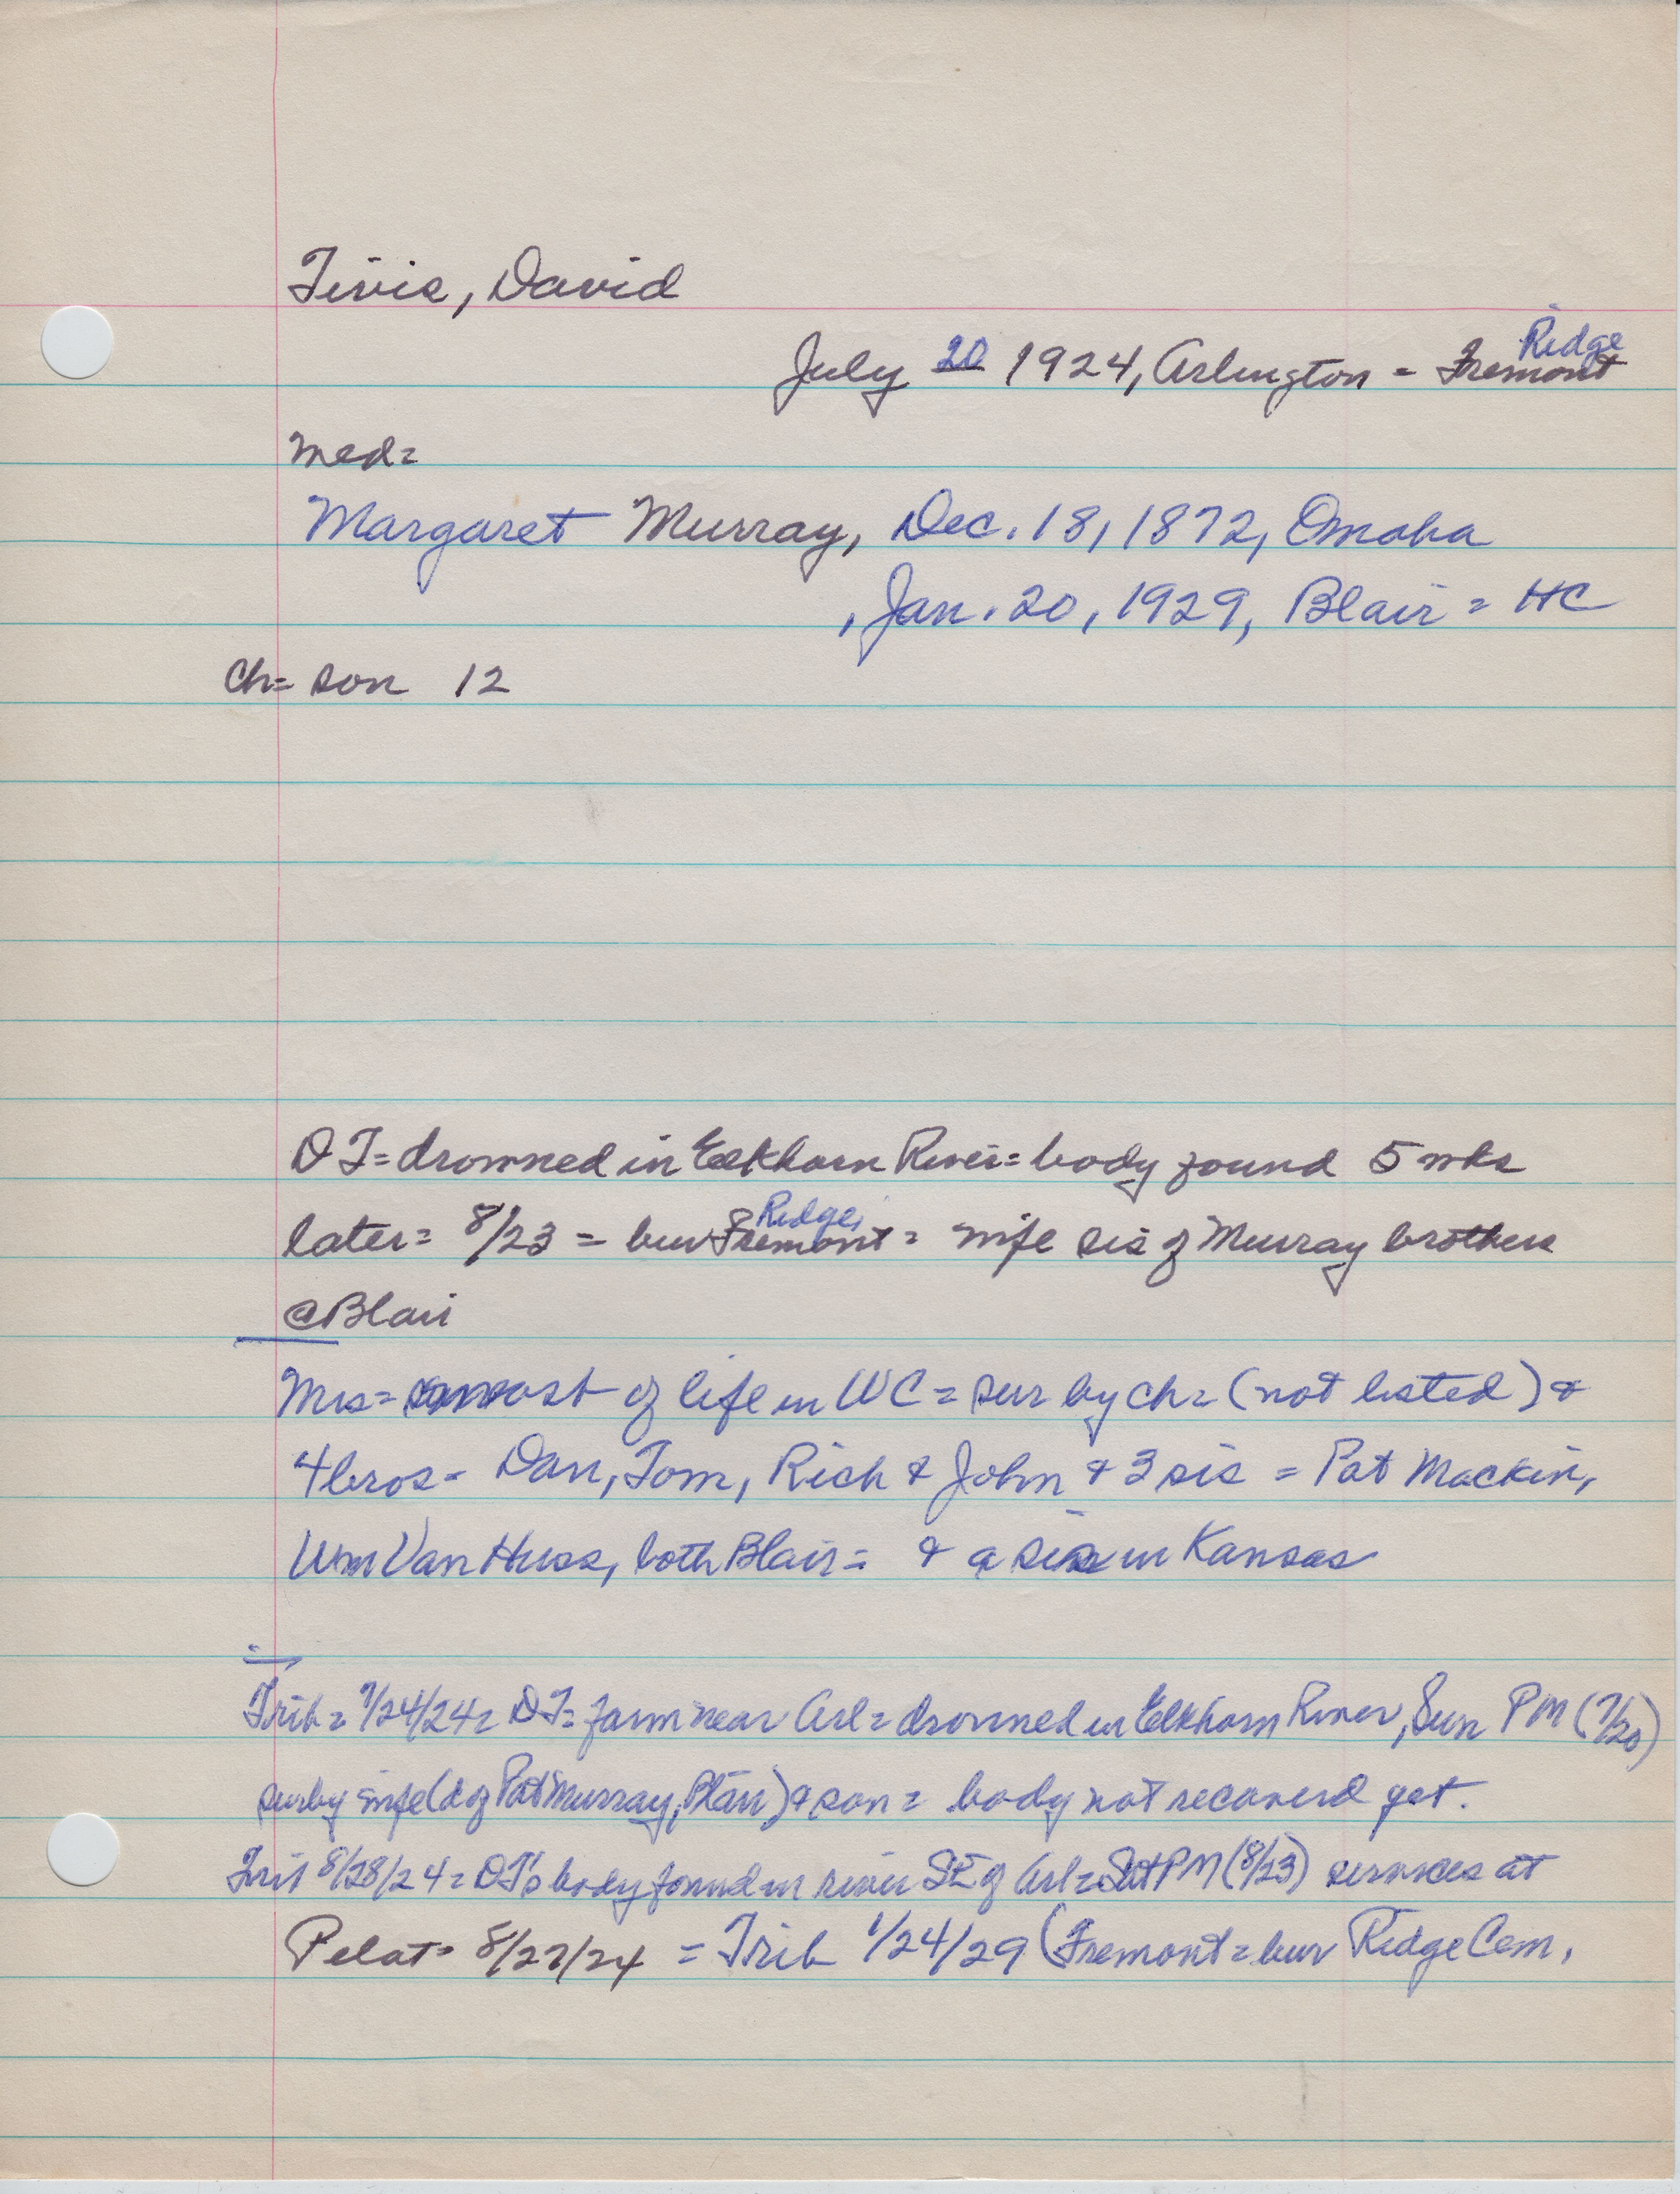 Tivis, David
Ridge
July 20 1924, Arlington = Fremont
Med=
Margaret Murray, Dec. 18, 1872, Omaha
, Jan. 20, 1929, Blair = HC
Ch= son 12
DT= drowned in Elkhorn River= body found 5 wks
Ridge,
later= 8/23 = bur Fremont = wife sis of Murray brothers
@Blair
Mrs= most of life in WC = sur by ch= (not listed) &
4 bros- Dan, Tom, Rich & John & 3 sis = Pat Mackin,
Wm Van Huss, both Blair = & a sis in Kansas
Trib= 7/24/24= DT= farm near Arl= drowned in Elkhorn River, Sun PM (7/20)
surby wife (d of Pat Murray, Blair) & son = body not recoverd yet.
Trib 8/28/24= DT's body found in river SE of Arl= Sat PM (8/23) services at
Pelat= 8/27/24 = Trib 1/24/29 (Fremont= bur Ridge Cem,